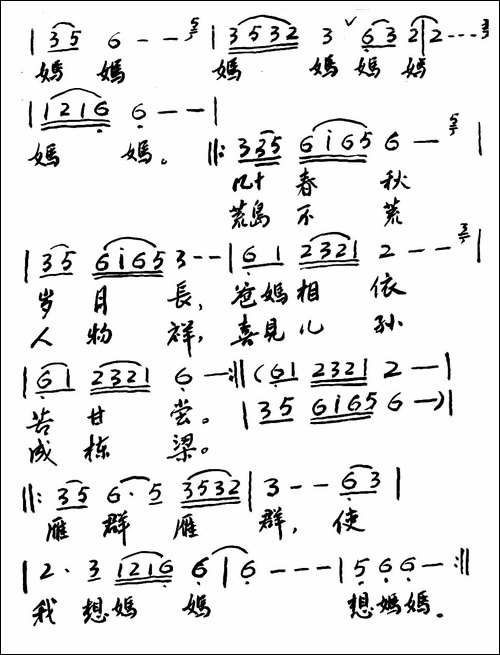 | 3 5 6 - - | 3 5 3 2 3 ˅ 6 3 2 | 2 - - -
媽 媽 媽 媽 媽 媽
| 1 2 1 6 6 - - |
媽 媽。
‖: 3 3 5 6 i 6 5 6 - |
几十 春 秋
荒島 不 荒
| 3 5 6 i 6 5 3 - - | 6 1 2 3 2 1 2 - - |
岁 月 長, 爸媽 相 依
人 物 祥, 喜見 儿 孙
| 6 1 2 3 2 1 6 - :‖ ( 6 1 2 3 2 1 2 - - |
苦 甘 尝。 | 3 5 6 i 6 5 6 - ) |
成 栋 梁。
‖: 3 5 6 · 5 3 5 3 2 | 3 - - 6 3 |
雁 群 雁 群, 使
| 2 · 3 1 2 1 6 6 | 6 - - - | 5 6 6 - :‖
我 想媽 媽 想媽媽.